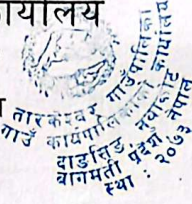 ार्यालय
तारकेश्वर गाउँपालिका
गाउँ कार्यपालिकाको कार्यालय
दाङसिङ, नुवाकोट
बागमती प्रदेश, नेपाल
स्था : २०७३